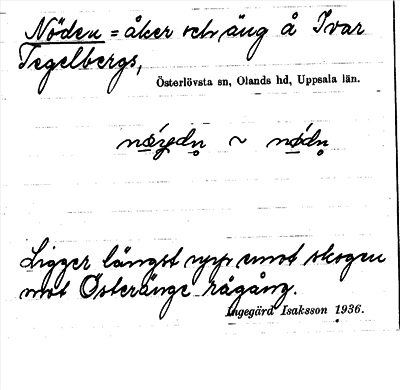 Nöden = åker och äng å Ivar
Tegelbergs,
Österlövsta sn, Olands hd, Uppsala län.
Ligger längst upp emot skogen
mot Österänge rågång.
Ingegärd Isaksson 1936.